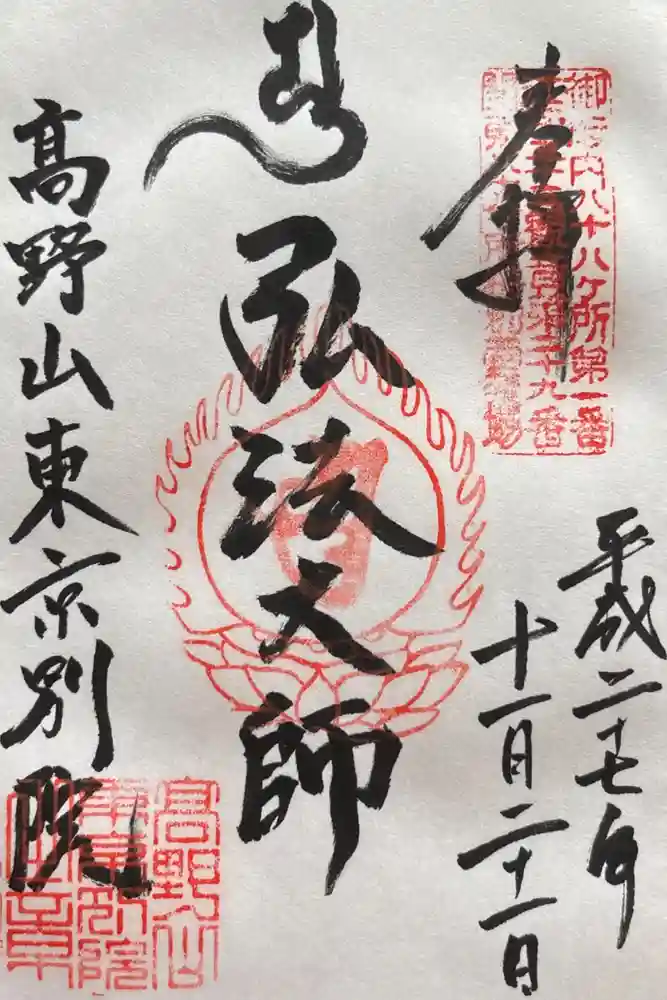 奉拝
御府内八十八ヶ所第一番
平成二十七年
十一月二十一日
弘法大師
髙野山東京別院
高野山
東京別院